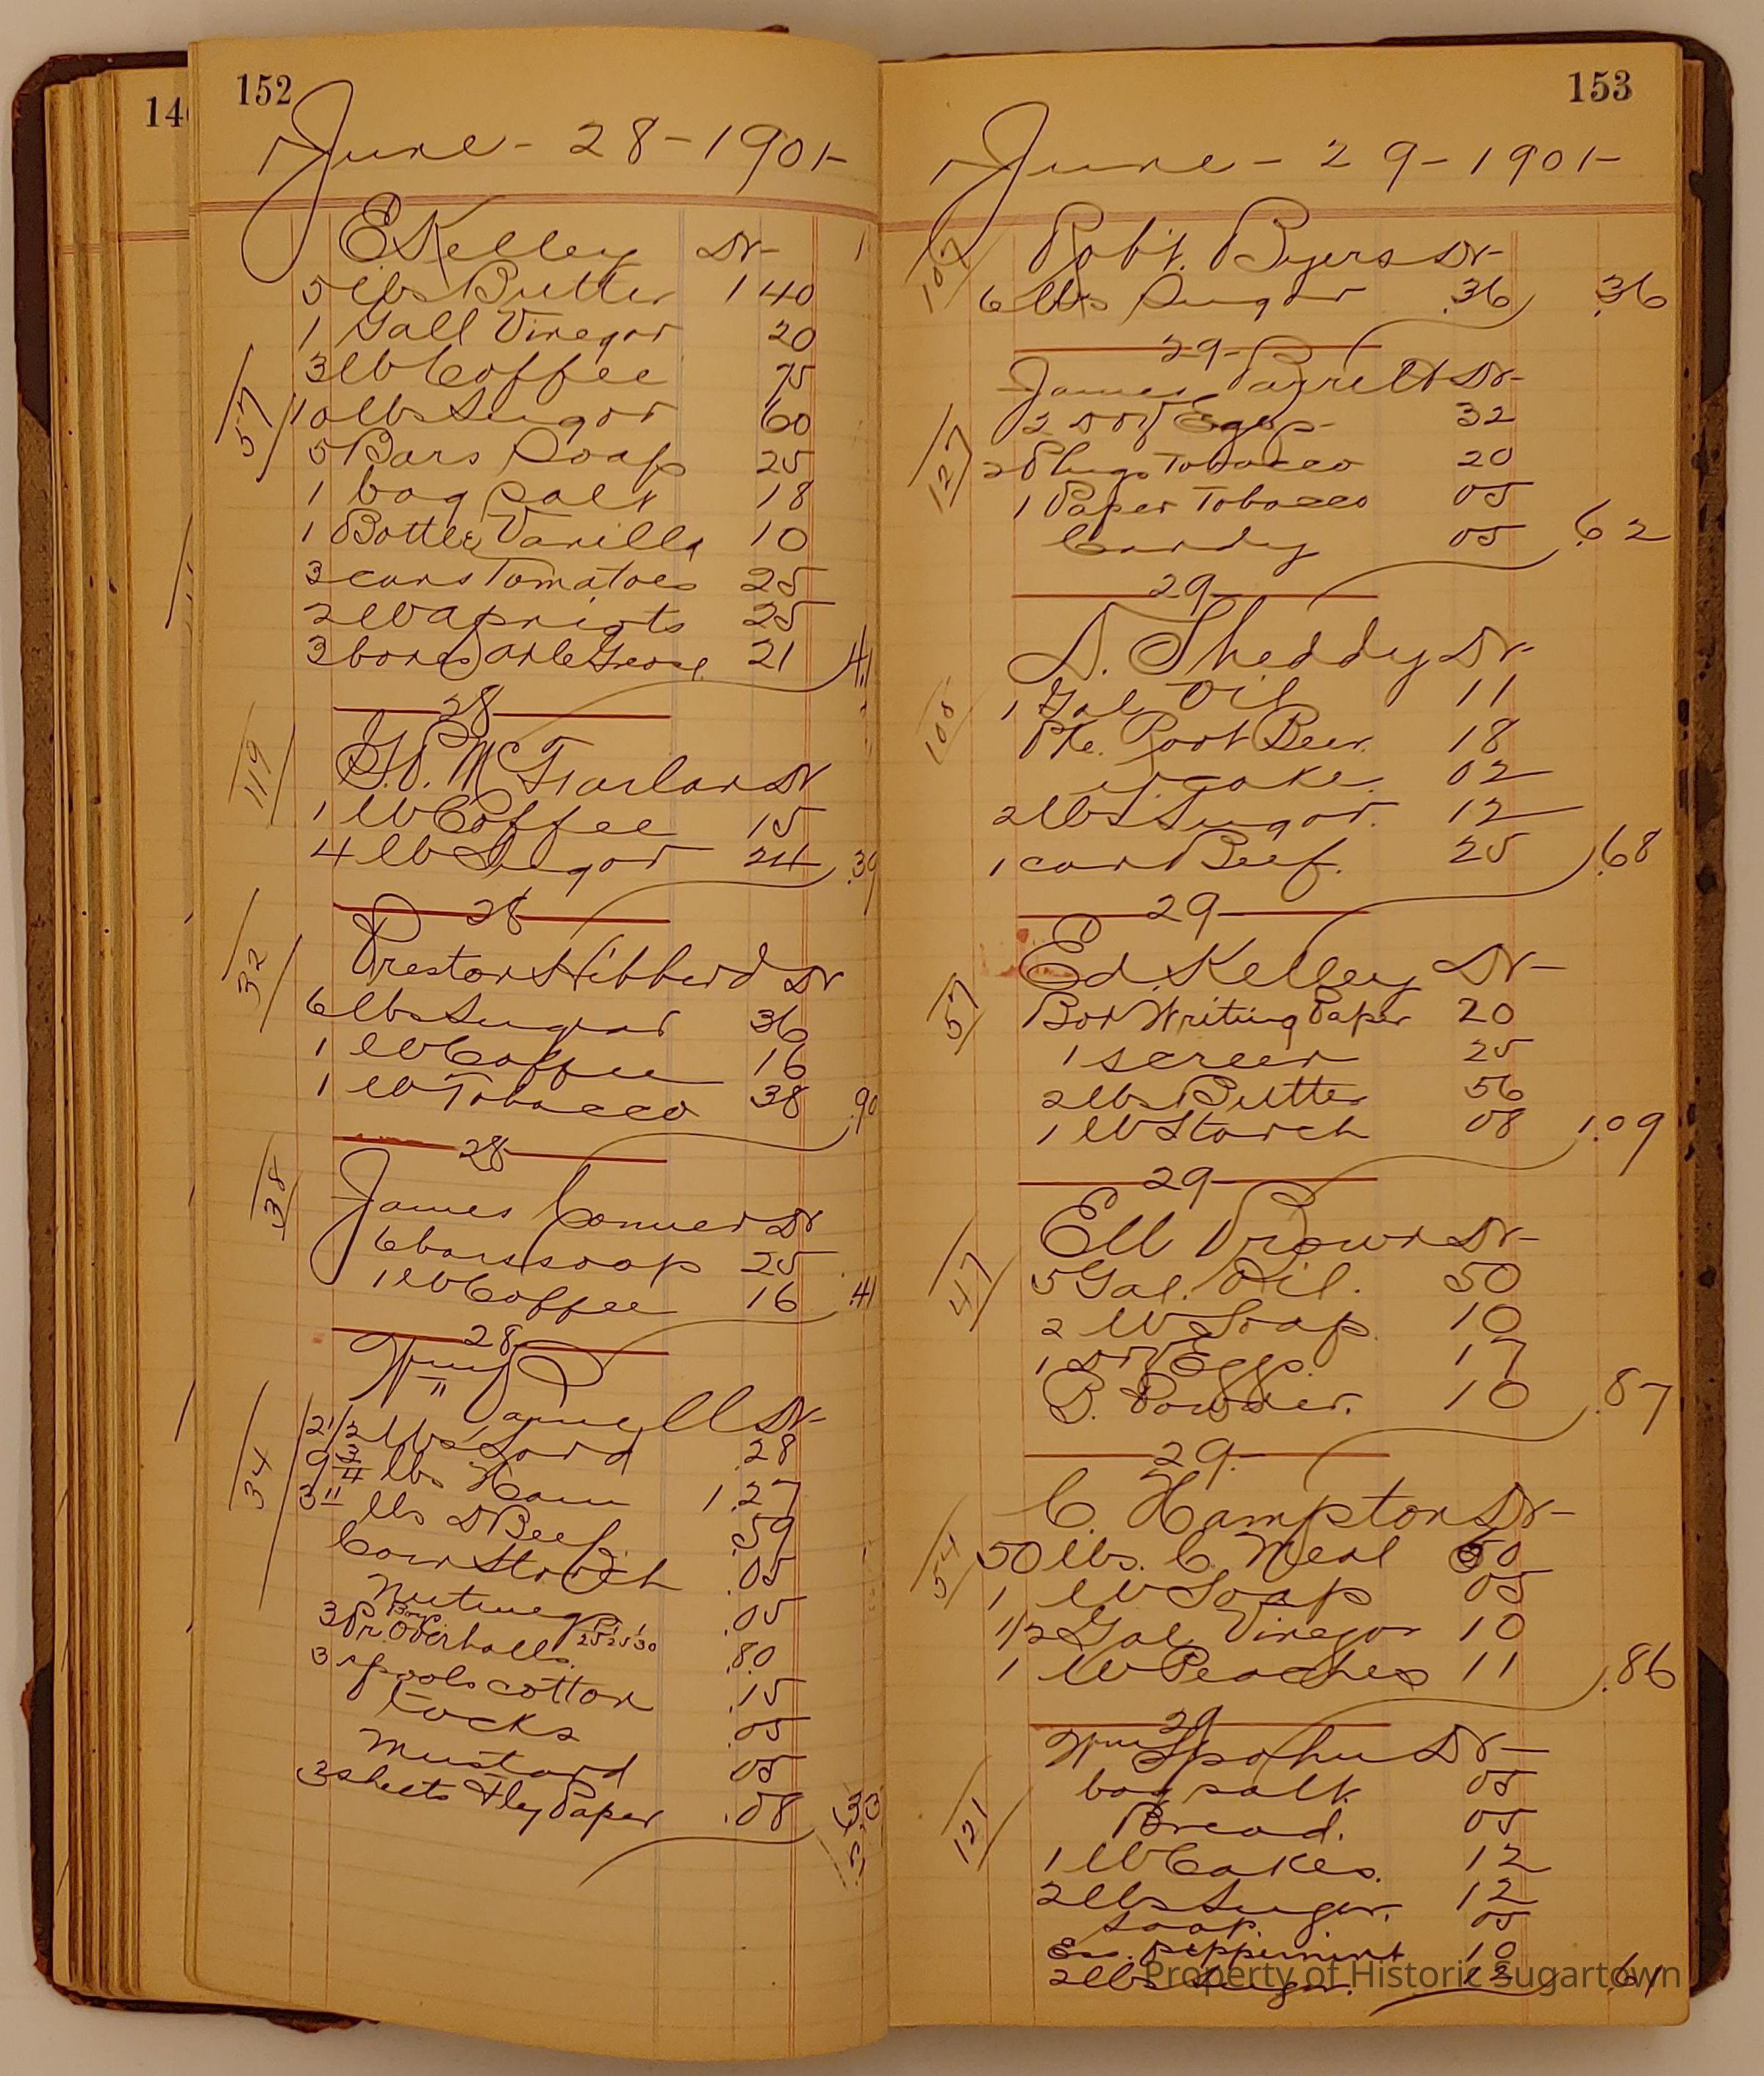 14
152
June - 28 - 1901-
E Kelley Dr-
1
5 lbs Butter 1 40
1 Gall Vinegar 20
3 lb Coffee 75
57
10 lbs Sugar 60
5 Bars Soap 25
1 bag Salt 18
1 Bottle Vanilla 10
3 cans Tomatoes 25
2 lb Apricts 25
3 boxes Axle Grease 21 4.1
28
119
G.P. McFarlan Dr
1 lb Coffee 15
4 lb Sugar 24 .39
28
32
Preston Hibberd Dr
6 lbs Sugar 36
1 lb Coffee 16
1 lb Tobacco 38 .90
28
38
James Conner Dr
6 bars soap 25
1 lb Coffee 16 .41
28
Wm
" Dr-
34
2 1/2 lbs Lard .28
9 3/4 lbs Ham 1.27
3 " lbs D Beef .59
Corn Starch .05
Nutmeg .05
3 Pr. Boys Overhalls 25 25 30 .80
3 spools cotton .15
tacks .05
Mustard .05
3 sheets Fly Paper .08
153
June - 29 - 1901-
107
Robt. Byers Dr-
6 lbs Sugar .36 .36
29-
127
James Parrett Dr-
2 doz Eggs 32
2 Plugs Tobacco 20
1 Paper Tobacco 05
Candy 05 .62
29
D. Sheddy Dr-
1 Gal Oil 11
Pkg. Root Beer 18
cake 02
2 lbs Sugar. 12
1 can Beef. 25 .68
29
57
Ed. Kelley Dr-
Box Writing Paper 20
1 screen 25
2 lbs Butter 56
1 lb Starch 08 1.09
29
47
Ell Brown Dr-
5 Gal. Oil. 50
2 lb Soap 10
1 doz Eggs. 17
B. Powder. 10 .87
29.
54
C. Hampton Dr-
50 lbs. C. Meal 60
1 lb Soap 05
1/2 Gal Vinegar 10
1 lb Peaches 11 .86
29
121
Wm Spohn Dr-
bag salt 05
Bread. 05
1 lb Cakes. 12
2 lbs Sugar. 12
Soap. 05
Ess. Peppermint 10
2 lbs Sugar. 12 .61
Property of Historic Sugartown